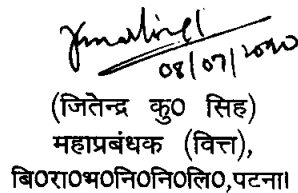 08/07/2020
(जितेन्द्र कु0 सिंह)
महाप्रबंधक (वित्त),
बि0रा0भ0नि0नि0लि0,पटना।